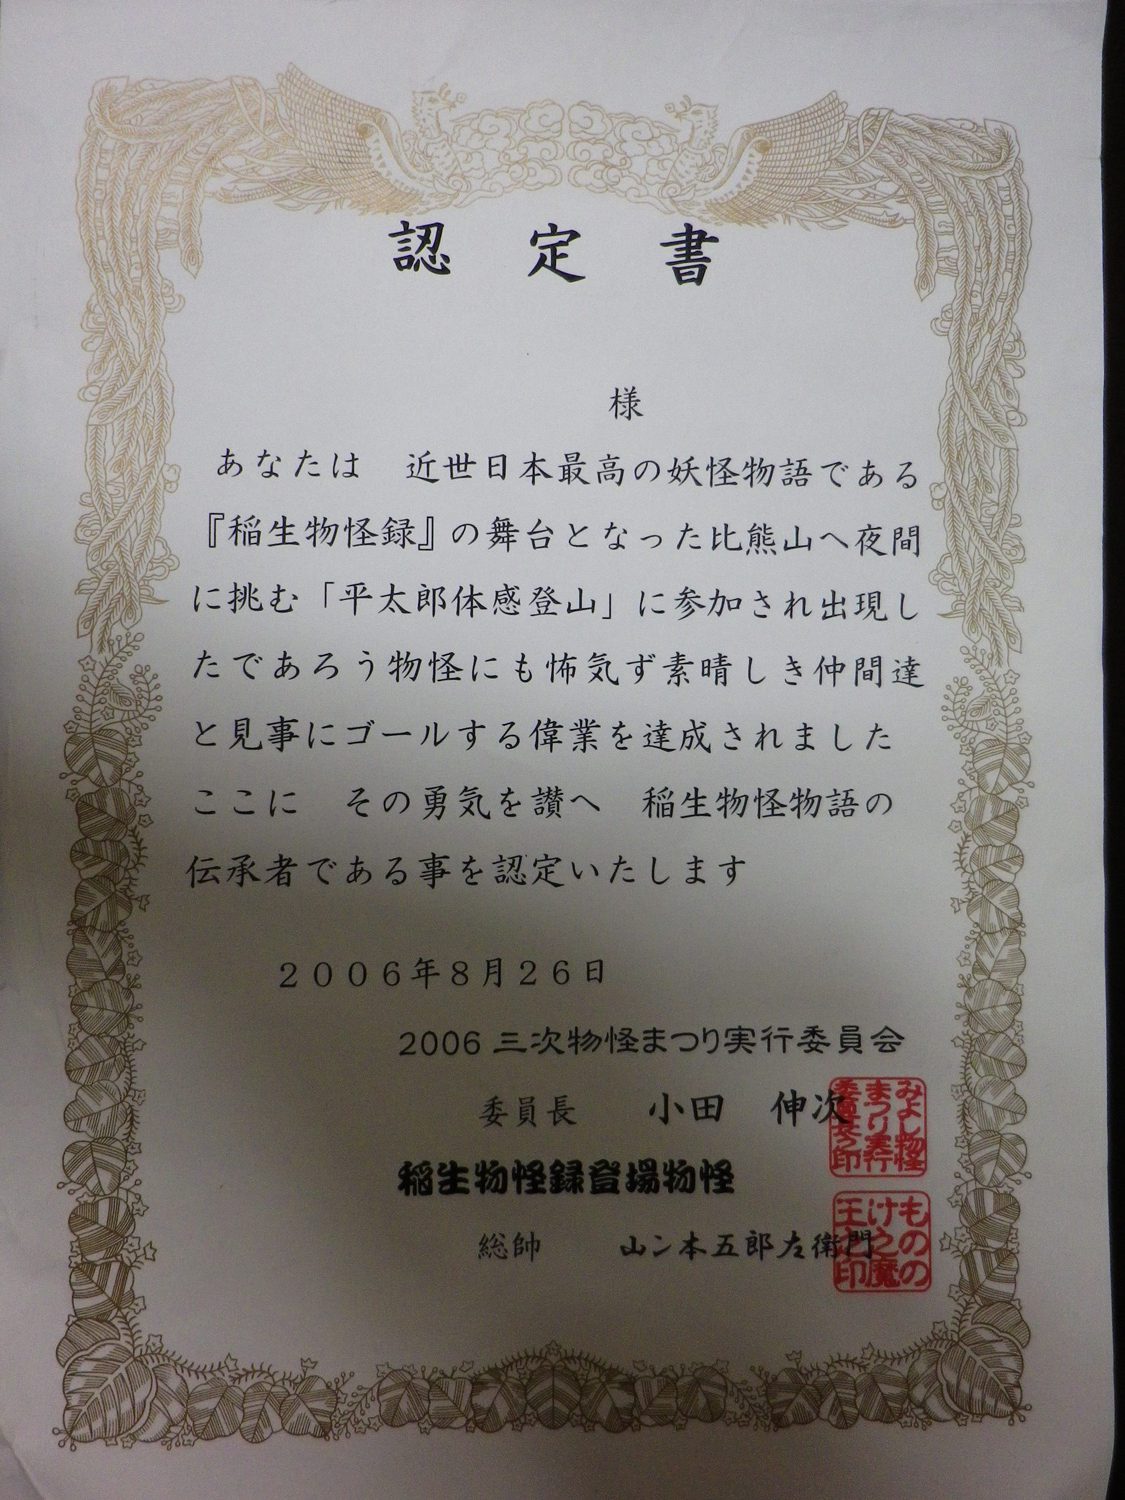 認定書
様
あなたは　近世日本最高の妖怪物語である
『稲生物怪録』の舞台となった比熊山へ夜間
に挑む「平太郎体感登山」に参加され出現し
たであろう物怪にも怖気ず素晴しき仲間達
と見事にゴールする偉業を達成されました
ここに　その勇気を讃へ　稲生物怪物語の
伝承者である事を認定いたします
２００６年８月２６日
2006 三次物怪まつり実行委員会
委員長　小田　伸次
みよし物怪
まつり実行
委員長之印
稲生物怪録登場物怪
総帥　山ン本五郎左衛門
ものの
け之魔
王之印